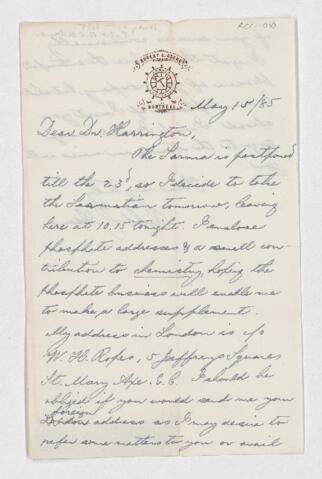 May 15/85
Dear Dr. Harrington,
The Parma is postponed
till the 23d, so I decide to take
the Sarmatian tomorrow, leaving
here at 10.15 tonight. I enclose
Phosphate addresses & a small con-
tribution to chemistry, hoping the
Phosphate business will enable me
to make a large supplement.
My address in London is c/o
W. H. Ropes, 5 Jeffreys Square
St. Mary Axe. E.C. I should be
obliged if you would send me your
foreign
London address as I may desire to
refer some matters to you or avail
MONTREAL